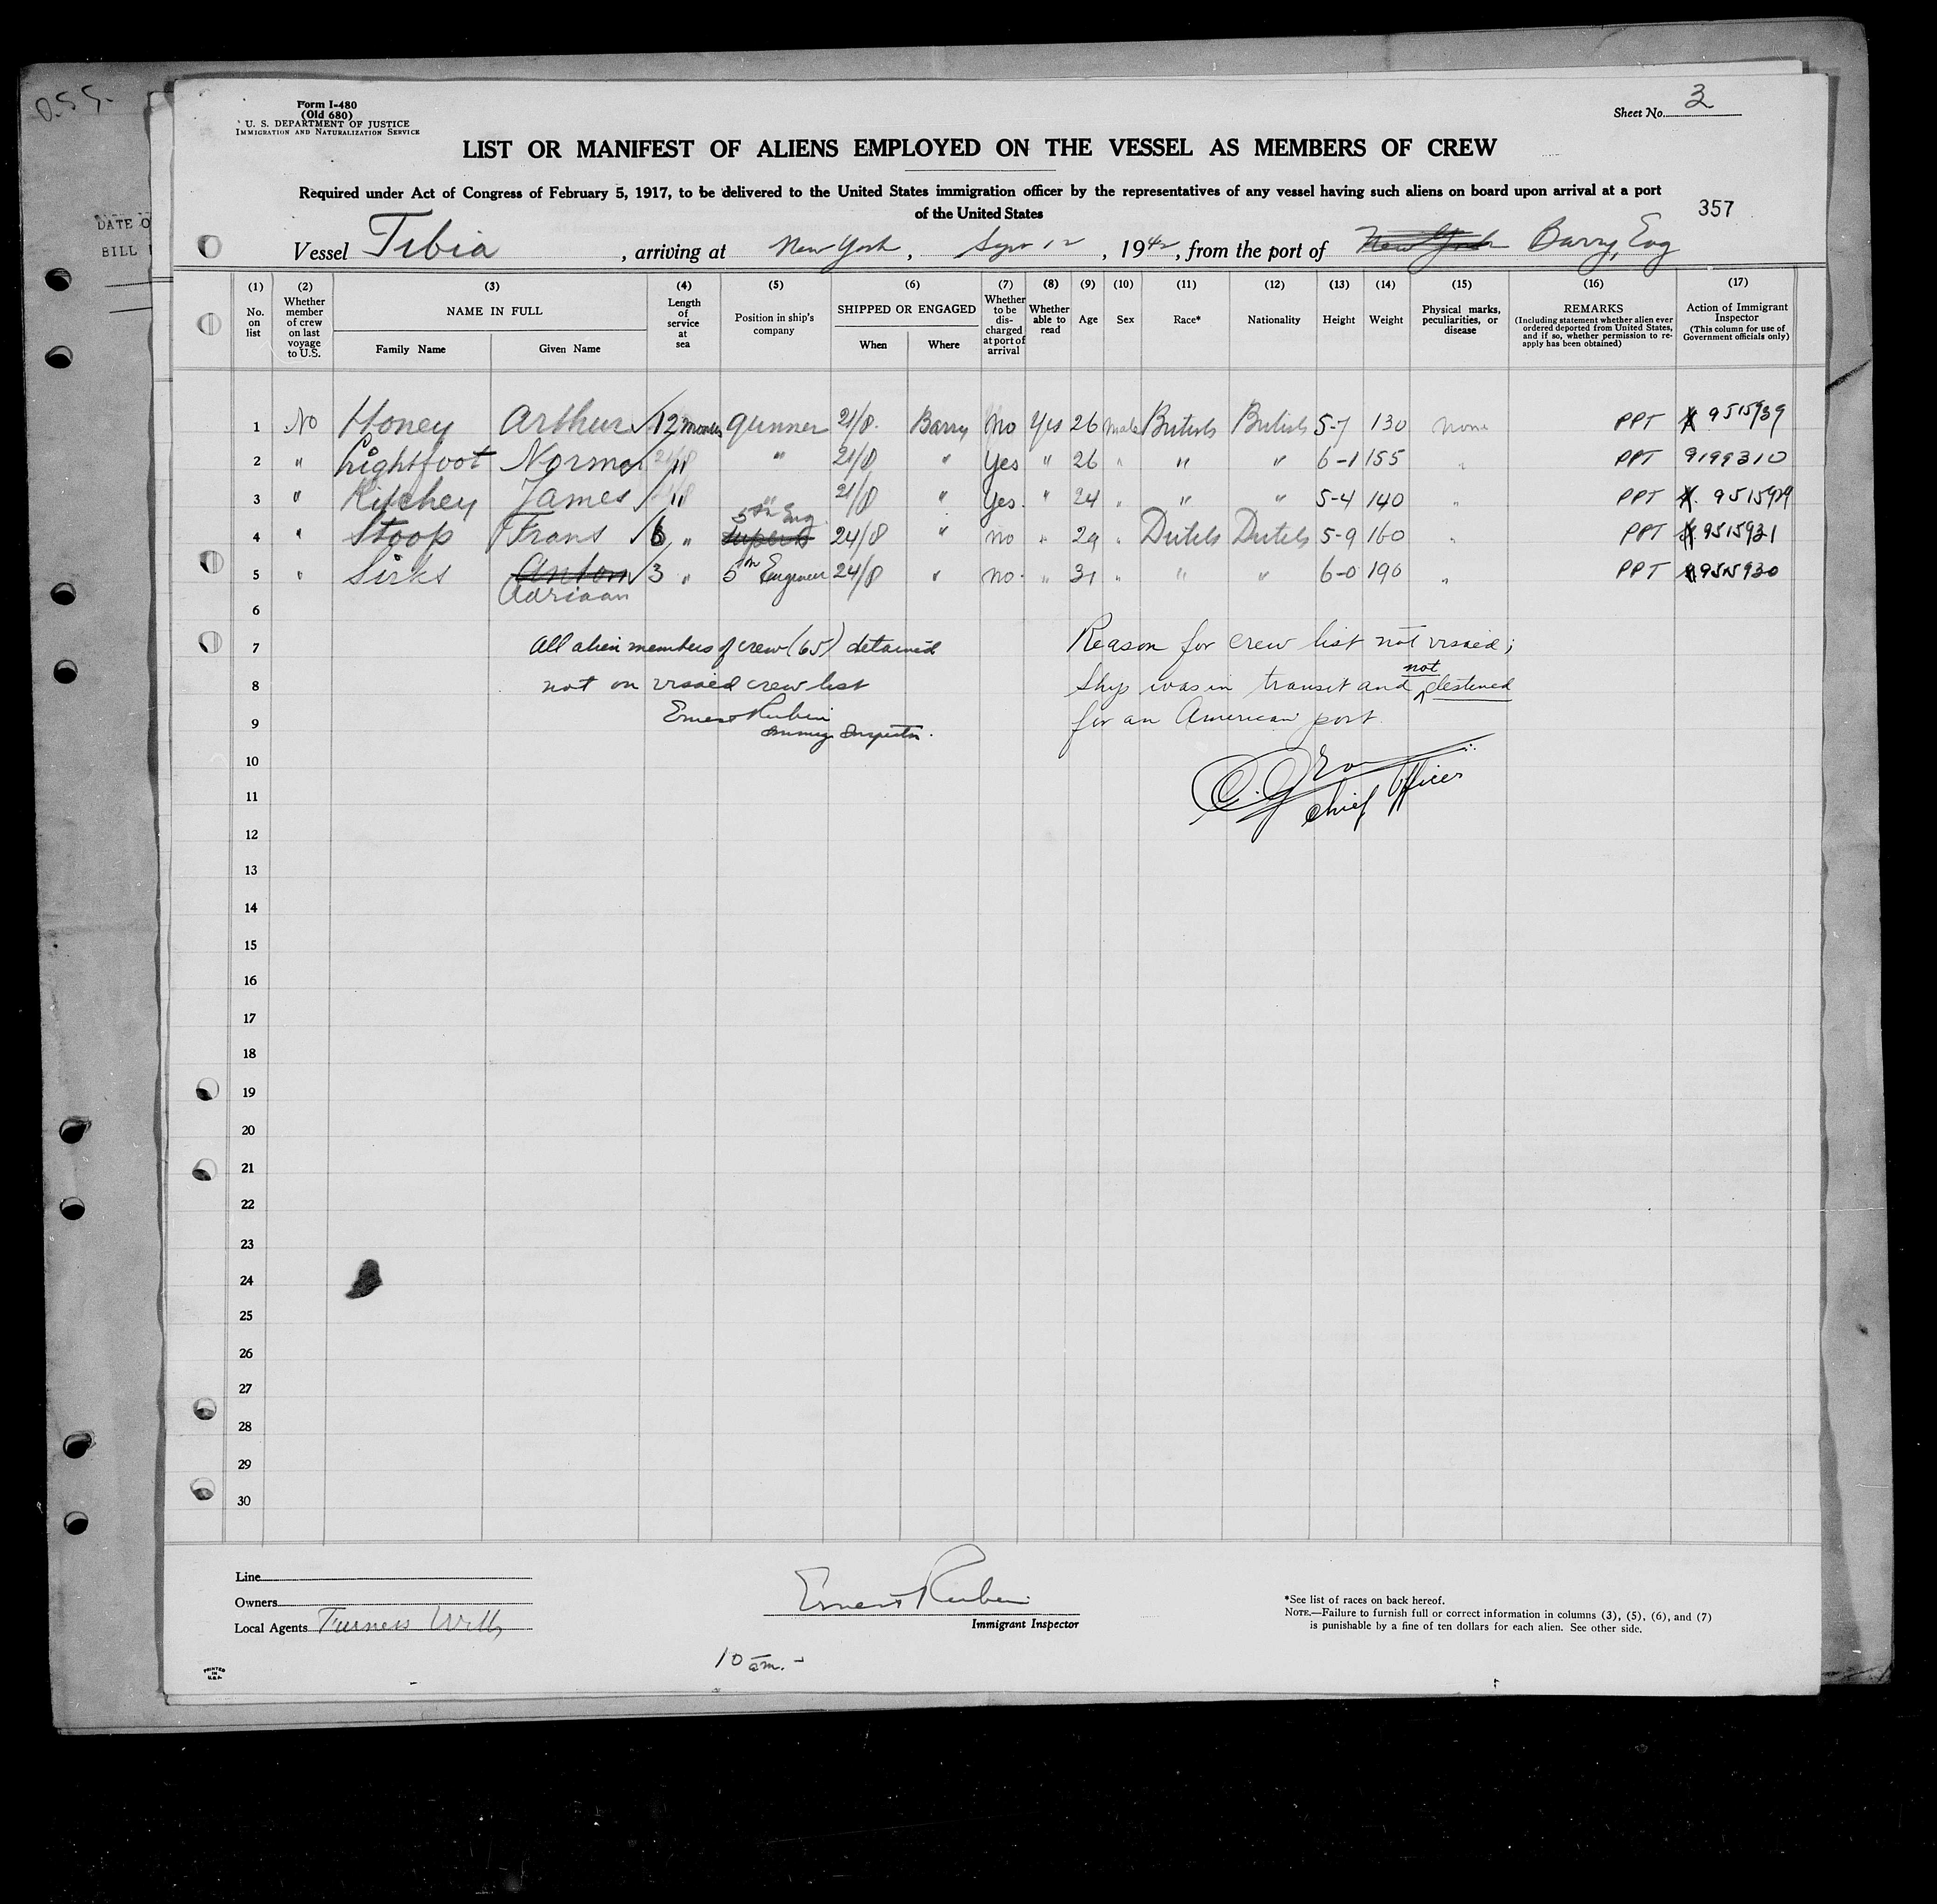 O.S.S.
DATE O
BILL
Form I-480
(Old 680)
U. S. DEPARTMENT OF JUSTICE
IMMIGRATION AND NATURALIZATION SERVICE
Sheet No. 3
LIST OR MANIFEST OF ALIENS EMPLOYED ON THE VESSEL AS MEMBERS OF CREW
Required under Act of Congress of February 5, 1917, to be delivered to the United States immigration officer by the representatives of any vessel having such aliens on board upon arrival at a port
of the United States
357
Vessel Tibia, arriving at New York, Sept 12, 1942, from the port of New York Barry, Eng
(1) (2) (3) (4) (5) (6) (7) (8) (9) (10) (11) (12) (13) (14) (15) (16) (17)
No. on list
Whether member of crew on last voyage to U.S.
NAME IN FULL
Family Name
Given Name
Length of service at sea
Position in ship's company
SHIPPED OR ENGAGED
When
Where
Whether to be discharged at port of arrival
Whether able to read
Age
Sex
Race*
Nationality
Height
Weight
Physical marks, peculiarities, or disease
REMARKS
(Including statement whether alien ever ordered deported from United States, and if so, whether permission to reapply has been obtained)
Action of Immigrant Inspector
(This column for use of Government officials only)
1 No Honey Arthur 12 months gunner 21/8. Barry No Yes 26 male British British 5-7 130 none PPT 9515939
2 " Lightfoot Norman " " 21/8 " Yes " 26 " " " 6-1 155 " PPT 9199310
3 " Ritchey James " " 21/8 " Yes. " 24 " " " 5-4 140 " PPT 9515929
5th Eng
4 " Stoop Frans 6 " 24/8 " no " 29 " Dutch Dutch 5-9 160 " PPT 9515931
5 " Sirks Anton 3 " 5th Engineer 24/8 " no. " 31 " " " 6-0 190 " PPT 9515930
Adriaan
6
7 All alien members of crew (65) detained Reason for crew list not visaed;
8 not on visaed crew list ship was in transit and not destined
9 Ernest Rubin for an American port.
Immig Inspector.
10
11 Chief Officer
12
13
14
15
16
17
18
19
20
21
22
23
24
25
26
27
28
29
30
Line
Owners
Local Agents Furness Withy
Ernest Rubin
Immigrant Inspector
10 am. -
*See list of races on back hereof.
NOTE.—Failure to furnish full or correct information in columns (3), (5), (6), and (7)
is punishable by a fine of ten dollars for each alien. See other side.
PRINTED
IN
U.S.A.